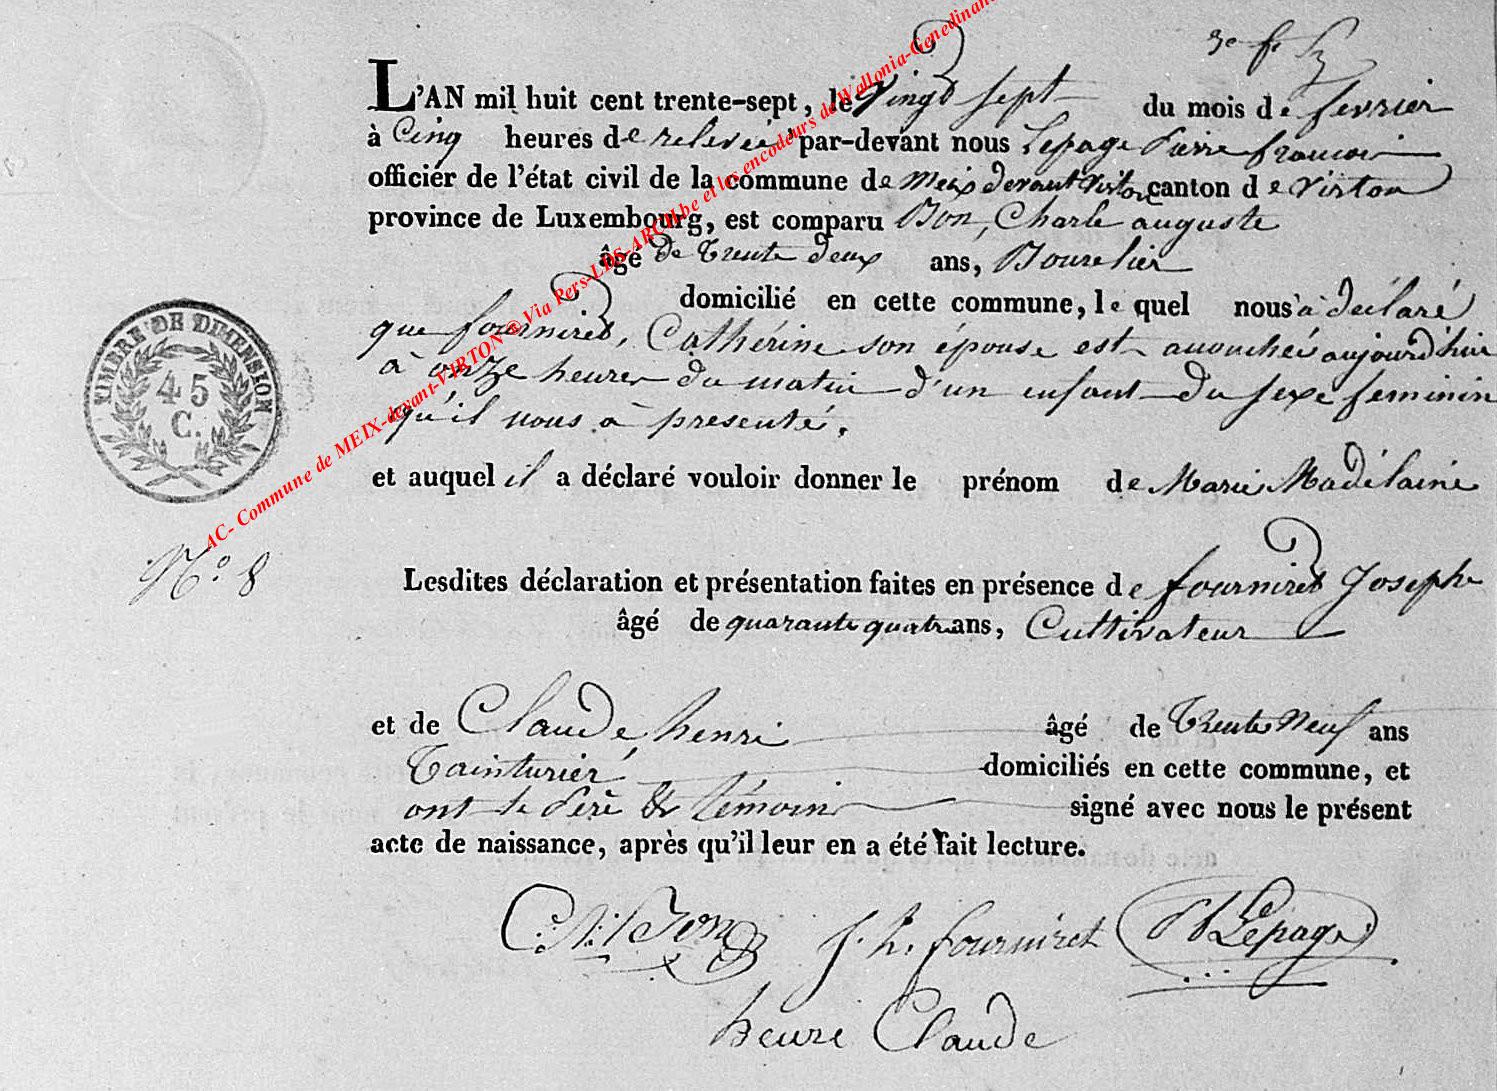 3e f
L'AN mil huit cent trente-sept, le vingt sept du mois de fevrier
à Cinq heures de relevée par-devant nous Lepage Pierre francois
officier de l'état civil de la commune de Meix devant Virton canton de Virton
province de Luxembourg, est comparu Bon, Charle auguste
âgé de trente deux ans, Bourelier
domicilié en cette commune, le quel nous à déclaré
que fourniret, Cathérine son épouse est accouchée aujourd'hui
à onze heures du matin d'un enfant du sexe feminin
qu'il nous à presenté.
et auquel il a déclaré vouloir donner le prénom de Marie Madelaine
Lesdites déclaration et présentation faites en présence de fourniret Joseph
âgé de quarante quatre ans, Cultivateur
et de Claude, henri âgé de trente neuf ans
tainturier domiciliés en cette commune, et
ont le Père & témoins signé avec nous le présent
acte de naissance, après qu'il leur en a été fait lecture.
C. A. Bon J. h. fourniret Lepage
henri Claude
TIMBRE DE DIMENSION
45
C.
N.° 8
AC- Commune de MEIX-devant-VIRTON © Via Pers-LDS-ARCH.be et les encodeurs de Wallonia-Genedinant